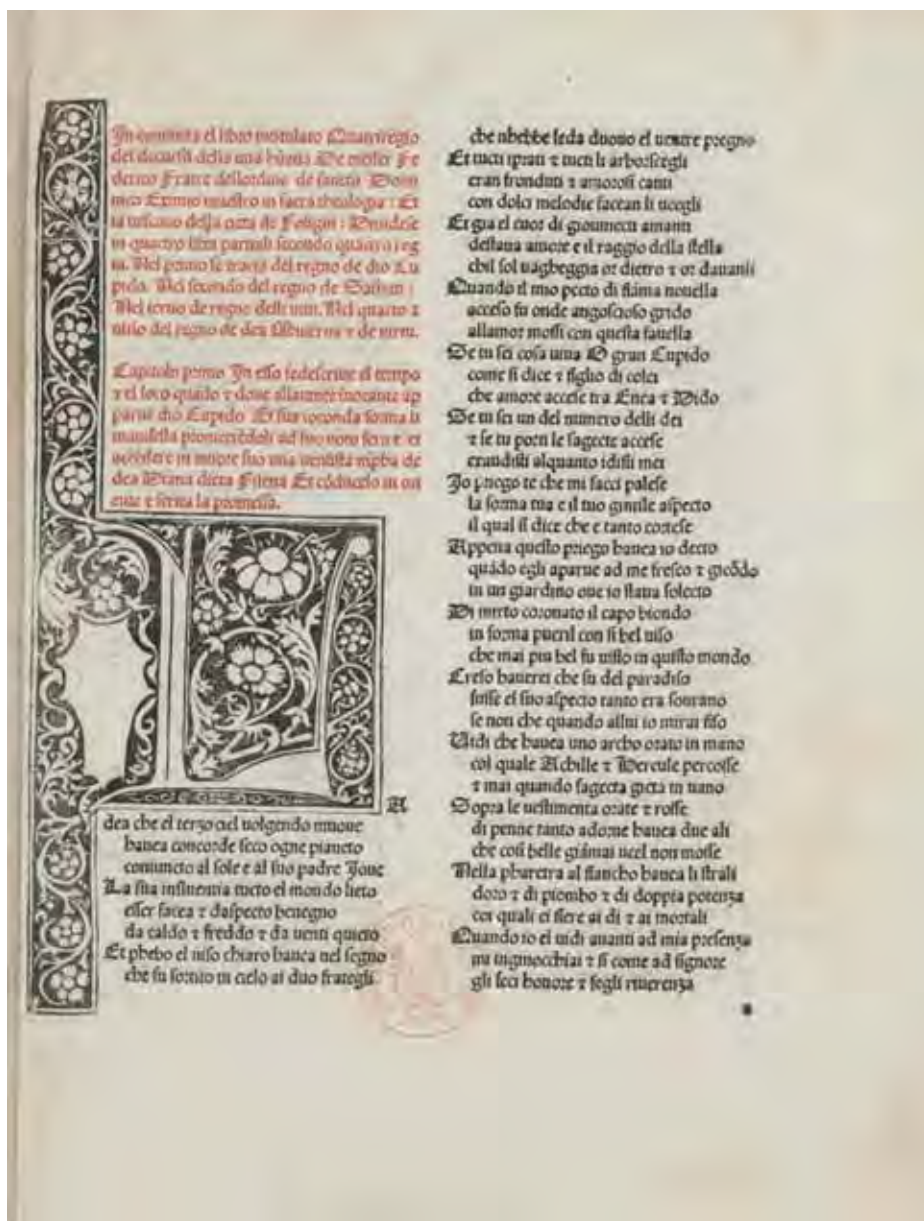 Incomenza el libro intitulato Quatriregio
del decursu della uita humana De messer Fe
derico Fratre dellordine de sancto Domi
nico Eximio maestro in sacra theologia: Et
gia uescouo della cita de Foligni: Diuidese
in quactro libri partiali secondo quactro reg
ni. Nel primo se tracta del regno de dio Cu
pido. Nel secondo del regno de Sathan:
Nel terzo de regno delli uitii. Nel quarto z
ultio del regno de dea Minerua z de uirtu.
Capitolo primo In esso sedescriue el tempo
z el loco quãdo z doue allamante inocante ap
parue dio Cupido Et sua ioconda forma li
manifesta promectẽdoli ad suo uoto ferire et
accẽdere in amore suo una uenusta nipha de
dea Diana dicta Filena Et cõducelo in ori
ente z serua la promessa.
LA
dea che el terzo ciel uolgendo muoue
hauea concorde seco ogne pianeto
coniuncto al sole e al suo padre Joue
La sua influentia tucto el mondo lieto
esser facea z daspecto benegno
da caldo z freddo z da uenti quieto
Et phebo el uiso chiaro hauea nel segno
che fu fornito in cielo ai duo frategli
che nhebbe leda duouo el uentre pregno
Et tucti iprati z tucti li arborscegli
eran fronduti z amorosi canti
con dolci melodie facean li ucegli
Et gia el cuor di giouinecti amanti
destaua amore e il raggio della stella
chil sol uagheggia or dietro z or dauanti
Quando il mio pecto di fiãma nouella
acceso fu onde angoscioso grido
allamor mossi con questa fauella
Se tu sei cosa uiua O gran Cupido
come si dice z figlio di colei
che amore accese tra Enea z Dido
Se tu sei un del numero delli dei
z se tu porti le sagecte accese
exaudisti alquanto idisii mei
Jo priego te che mi facci palese
la forma tua e il tuo gintile aspecto
il qual si dice che e tanto cortese
Appena questo priego hauea io decto
quãdo egli aparue ad me fresco z giocõdo
in un giardino oue io staua solecto
Di mirto coronato il capo biondo
in forma pueril con si bel uiso
che mai piu bel fu uisto in questo mondo
Creso hauerei che fu del paradiso
fuisse el suo aspecto tanto era sourano
se non che quando allui io mirai fiso
Uidi che hauea uno archo orato in mano
col quale Achille z Hercule percosse
z mai quando sagecta gicta in uano
Sopra le uestimenta orate z rosse
di penne tanto adorne hauea due ali
che cosi belle giãmai ucel non mosse
Nella pharetra al fiancho hauea li strali
doro z di piombo z di doppia potenza
coi quali ei fiere ai di z ai mortali
Quando io el uidi auanti ad mia presenza
mi inginocchiai z si come ad signore
gli feci honore z fegli riuerenza